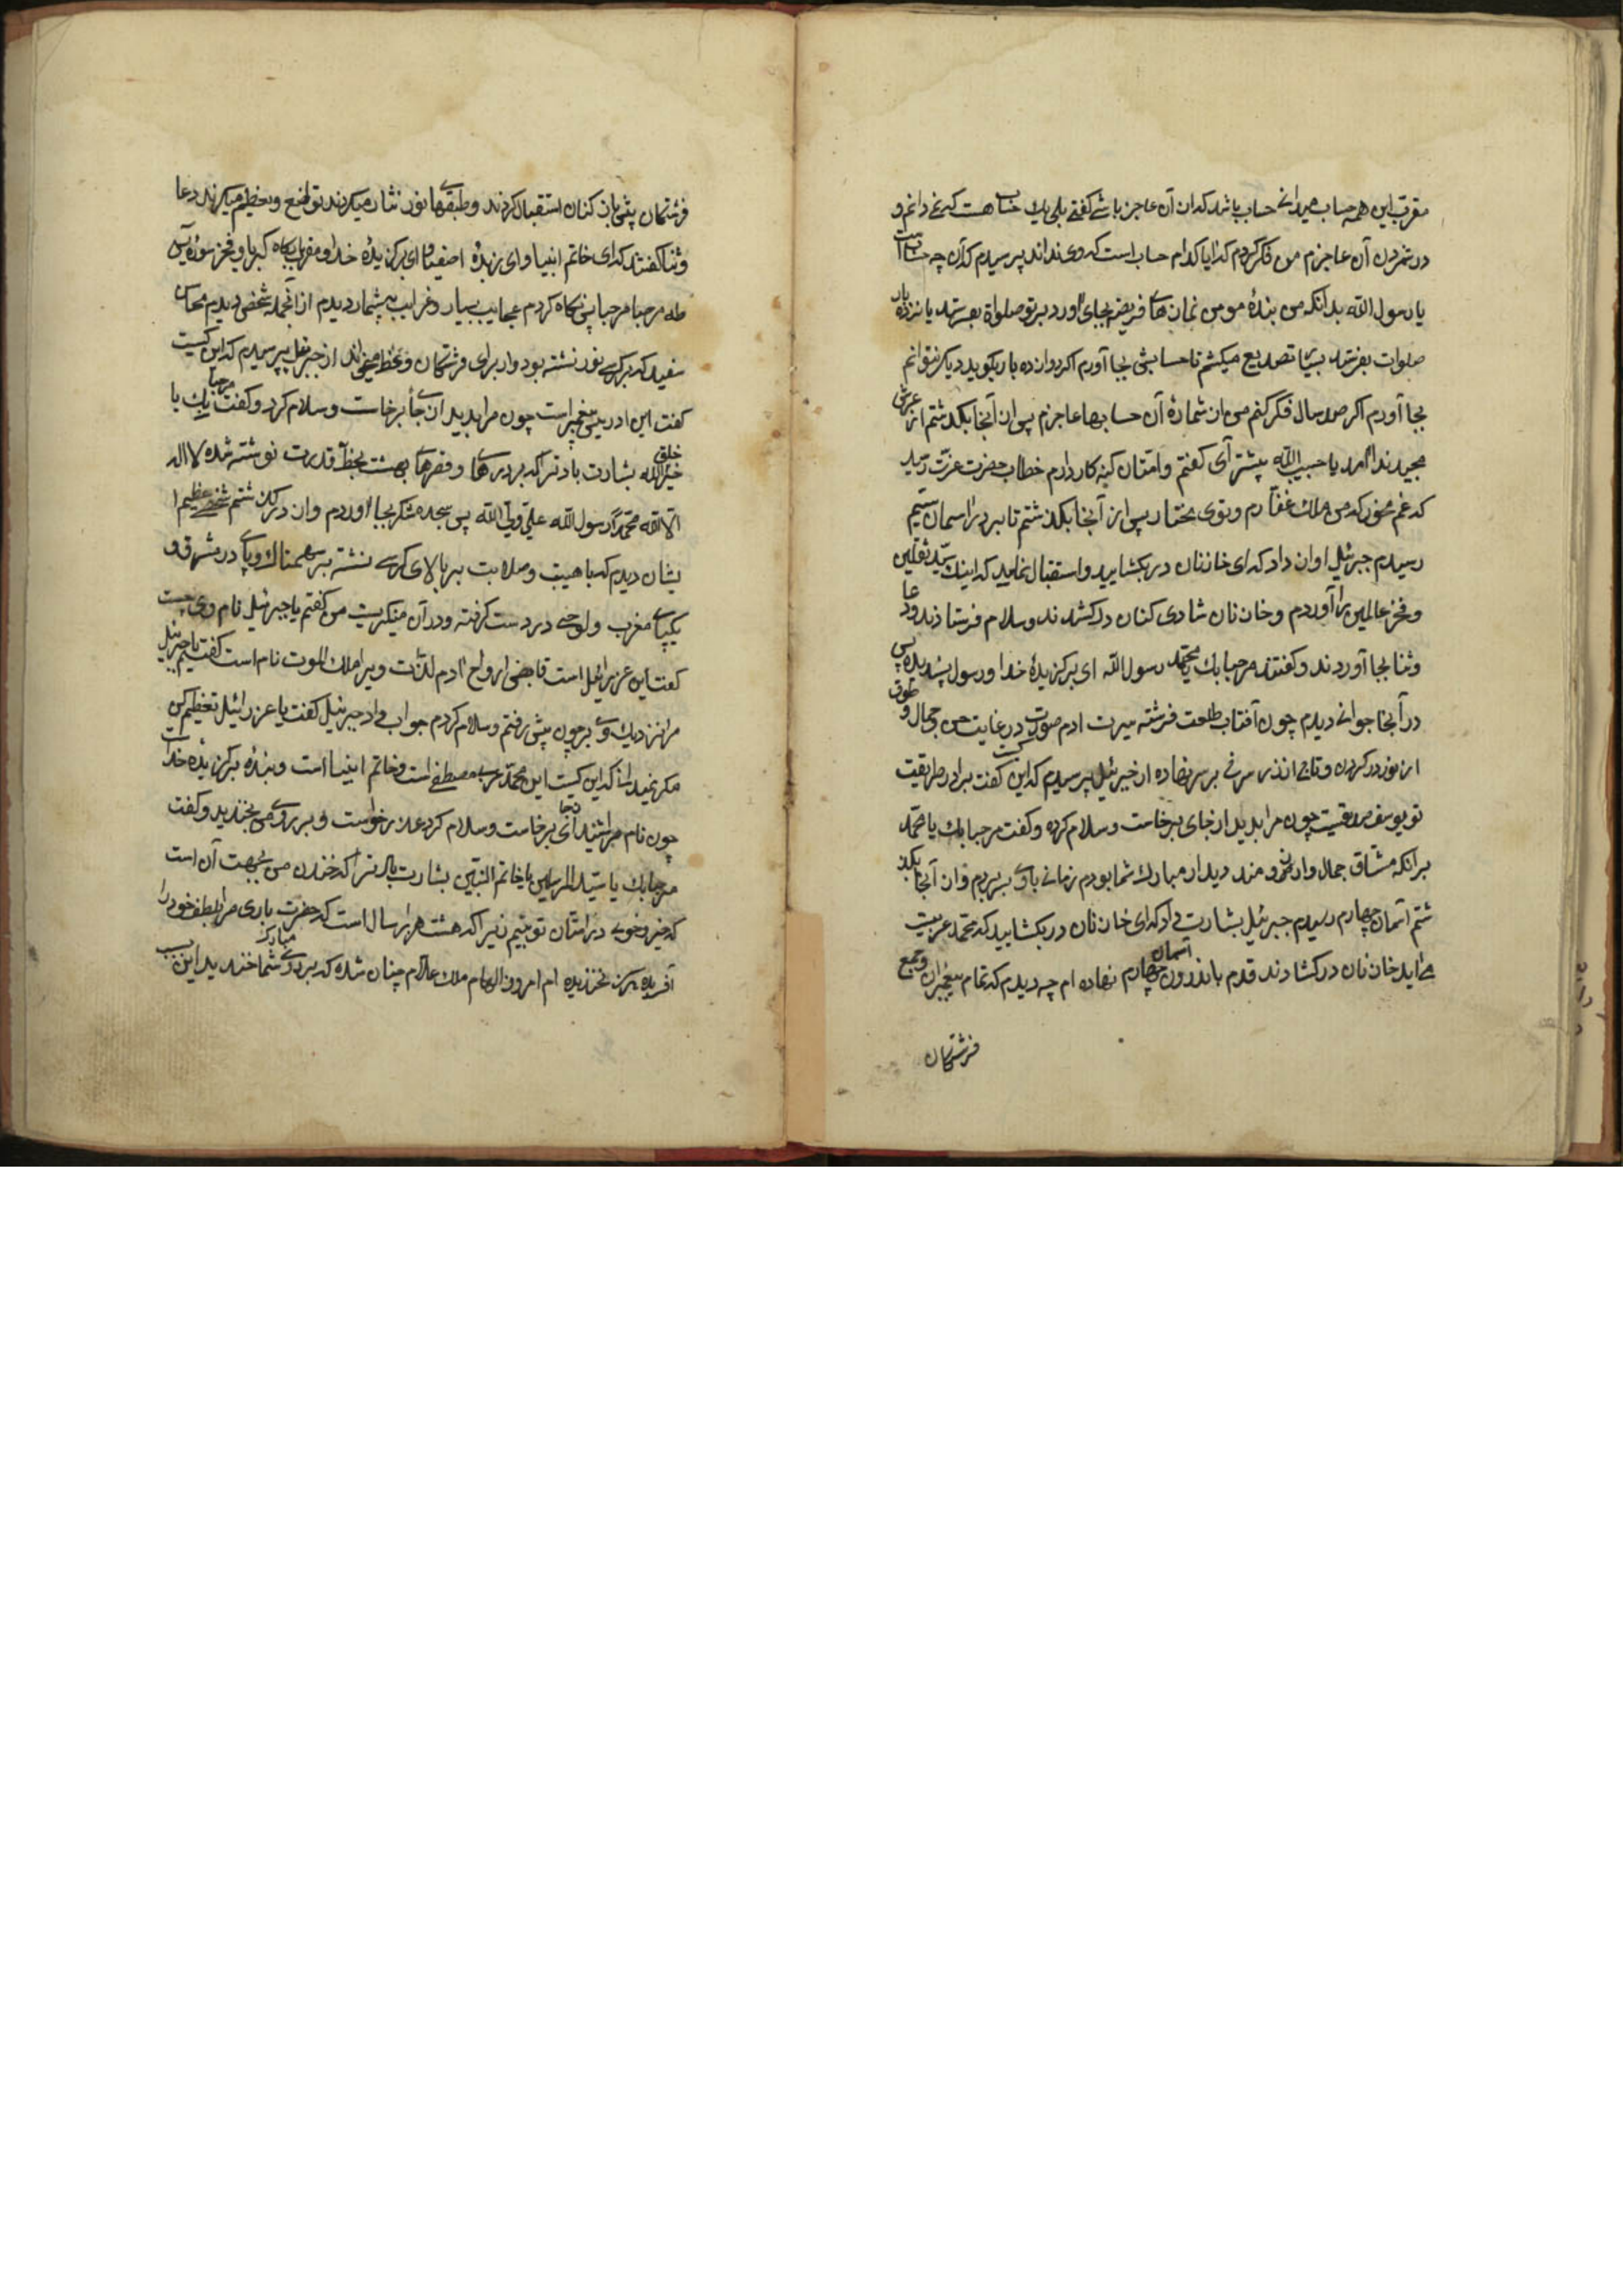 مقرب این همه حساب میدانی حساب باشد که از آن عاجز باشی کفتی بلی یك حساب هست که نمیدانم و
در شمردن آن عاجزم من فکر کردم که ایا کدام حساب است که وی نداند پرسیدم که آن چه حساب است
یا رسول الله بدانکه من بندۀ مومن نمازهای فریضه بجای آورد بر تو صلواة بفرستد یازده بار
صلوات بفرستد تصدیع میکشم تا حسابش بجا آورم اکر دوازده بار بکوید دیکر نتوانم
بجا آورم اکر صد سال فکر کنم من از شمارۀ آن حسابها عاجزم پس از آنجا بکذشتم از عرش
مجید ندا آمد یا حبیب الله پیشتر آی کفتم وامتان کنه کار دارم خطاب حضرت عزت رسید
که غم مخور که من ملك غفارم وتوی مختار پس از آنجا بکذشتم تا بر در اسمان سیم
رسیدم جبرئیل اواز داد که ای خازنان در بکشایید واستقبال نمایید که اینك سید ثقلین
وفخر عالمین را آوردم وخازنان شادی کنان در کشدند وسلام فرستادند ودعا
وثنا بجا آوردند وکفتند مرحبا بك یا محمد رسول الله ای برکزیدۀ خدا ورسول پسندیده پس
در آنجا جوانی دیدم چون آفتاب طلعت فرشته سیرت ادم صورت در غایت حسن وجمال وطوق
از نور در کردن وتاجی از زر سرخ بر سر نهاده از جبرئیل پرسیدم که این کیست کفت برادر طریقت
تو یوسف صدیقست چون مرا بدید از جای برخاست وسلام کرده وکفت مرحبا بك یا محمد
بدانکه مشتاق جمال وارزومند دیدار مبارك شما بودم زمانی باوی بسر بردم واز آنجا بکذ
شتم آسمان چهارم رسیدم جبرئیل بشارت داد که ای خازنان در بکشایید که محمد عربیست
می اید خازنان در کشادند قدم باندرون آسمان چهارم نهاده ام چه دیدم که تمام پیغمبران وجمع
فرشتکان
فرشتکان پیش باز کنان استقبال کردند وطبقهای نور نثار میکردند تواضع وتعظیم میکردند دعا
وثنا کفتند که ای خاتم انبیا وای زبدۀ اصفیا وای برکزیدۀ خدا ومقرب بارکاه کبریا وفخر سورۀ یس
طه مرحبا مرحبا پس نکاه کردم عجایب بسیار وغرایب بیشمار دیدم از آنجمله شخصی دیدم محاسن
سفید که بر کرسی نور نشته بود وازبرای فرشتکان وعظ میخواند از جبرئیل پرسیدم که این کیست
کفت این ادریس پیغمبر است چون مرا بدید از جا برخاست وسلام کرد وکفت مرحبا بك یا
خیر خلق الله بشارت باد ترا که بر درها وقصرهای بهشت بخط قدرت نوشته شده لا اله
الا الله محمد رسول الله علی ولی الله پس سجده شکر بجا آوردم واز در کذشتم شخصی عظیم ا
یشان دیدم که با هیبت وصلابت بر بالای کرسی نشته بر سهمناك وپای در مشرق و
یکپای مغرب ولوحی در دست کرفته ودر آن مینکریست من کفتم یا جبرئیل نام وی چیست
کفت این عزرائیل است قابض ارواح آدم لذات ویرا ملك الموت نام است کفتم یا جبرئیل
مرا نزدیك وی بر چون پیش رفتم وسلام کردم جواب داد جبرئیل کفت یا عزرائیل تعظیم کن
مکر نمیدانی که این کیست این محمد عربی مصطفی است وخاتم انبیا است وبندۀ برکزیدۀ خداست
چون نام مرا شنید از جای برخاست وسلام کرد عذر خواست وبر روی من بخندید وکفت
مرحبا بك یا سید المرسلین یا خاتم النبیین بشارت باد ترا که خندیدن من بجهت آن است
که خیر وخوبی در امتان تو بینم زیرا که هشت هزار سال است که حضرت باری مرا بلطف خود را
آفریده هرکز نخندیده ام امروز الهام ملك علام چنان شده که بر روی مبارك شما خندید این سبب